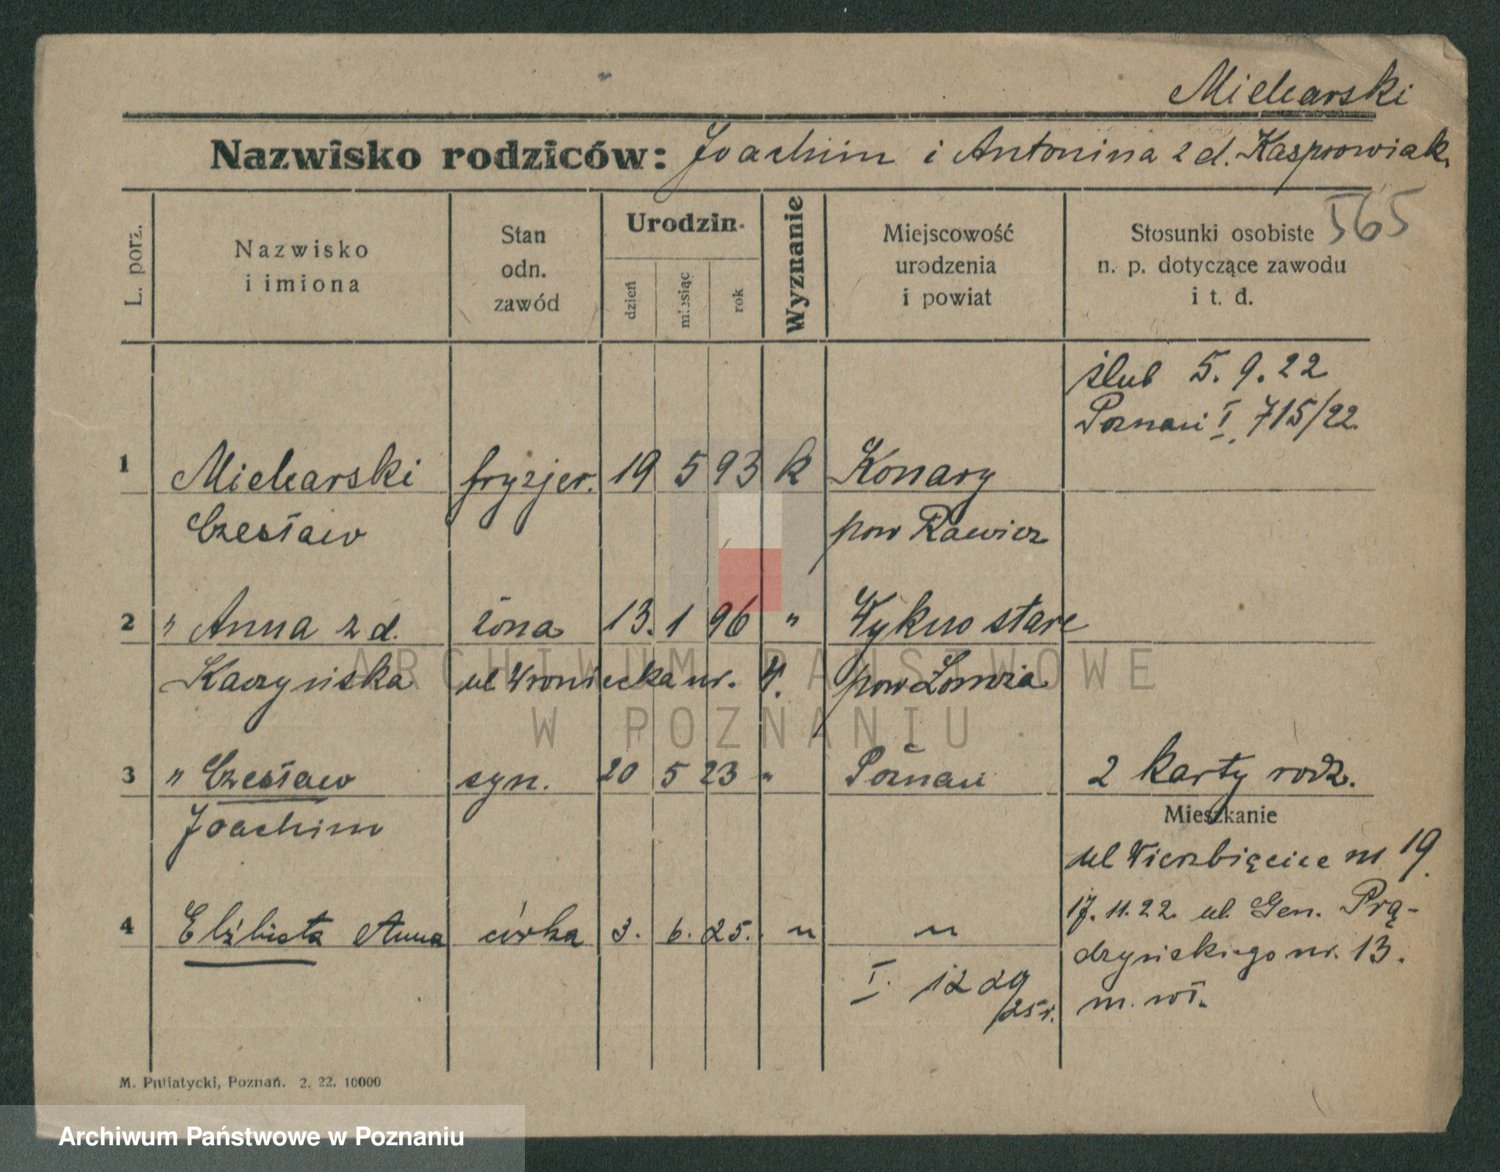 Mielcarski
Nazwisko rodziców: Joachim i Antonina z d. Kasprowiak
565
L. porz.
Nazwisko i imiona
Stan odn. zawód
Urodzin.
dzień
miesiąc
rok
Wyznanie
Miejscowość urodzenia i powiat
Stosunki osobiste n. p. dotyczące zawodu i t. d.
ślub 5. 9. 22
Poznań I. 715/22
1 Mielcarski fryzjer. 19 5 93 k Konary
Czesław pow Rawicz
2 " Anna z d. żona 13. 1 96 " Wykno stare
Kaczyńska ul Wroniecka nr. 4. pow Łomża
3 " Czesław syn. 20 5 23 " Poznań 2 karty rodz.
Joachim
Mieszkanie
ul Wierzbięcice nr 19.
17. 11. 22. ul. Gen. Prą-
4 Elżbieta Anna córka 3. 6. 25. " "
dzyńskiego nr. 13.
I. 1229/25 r. m. wł.
M. Putiatycki, Poznań. 2. 22. 10000
ARCHIWUM PAŃSTWOWE
W POZNANIU
Archiwum Państwowe w Poznaniu